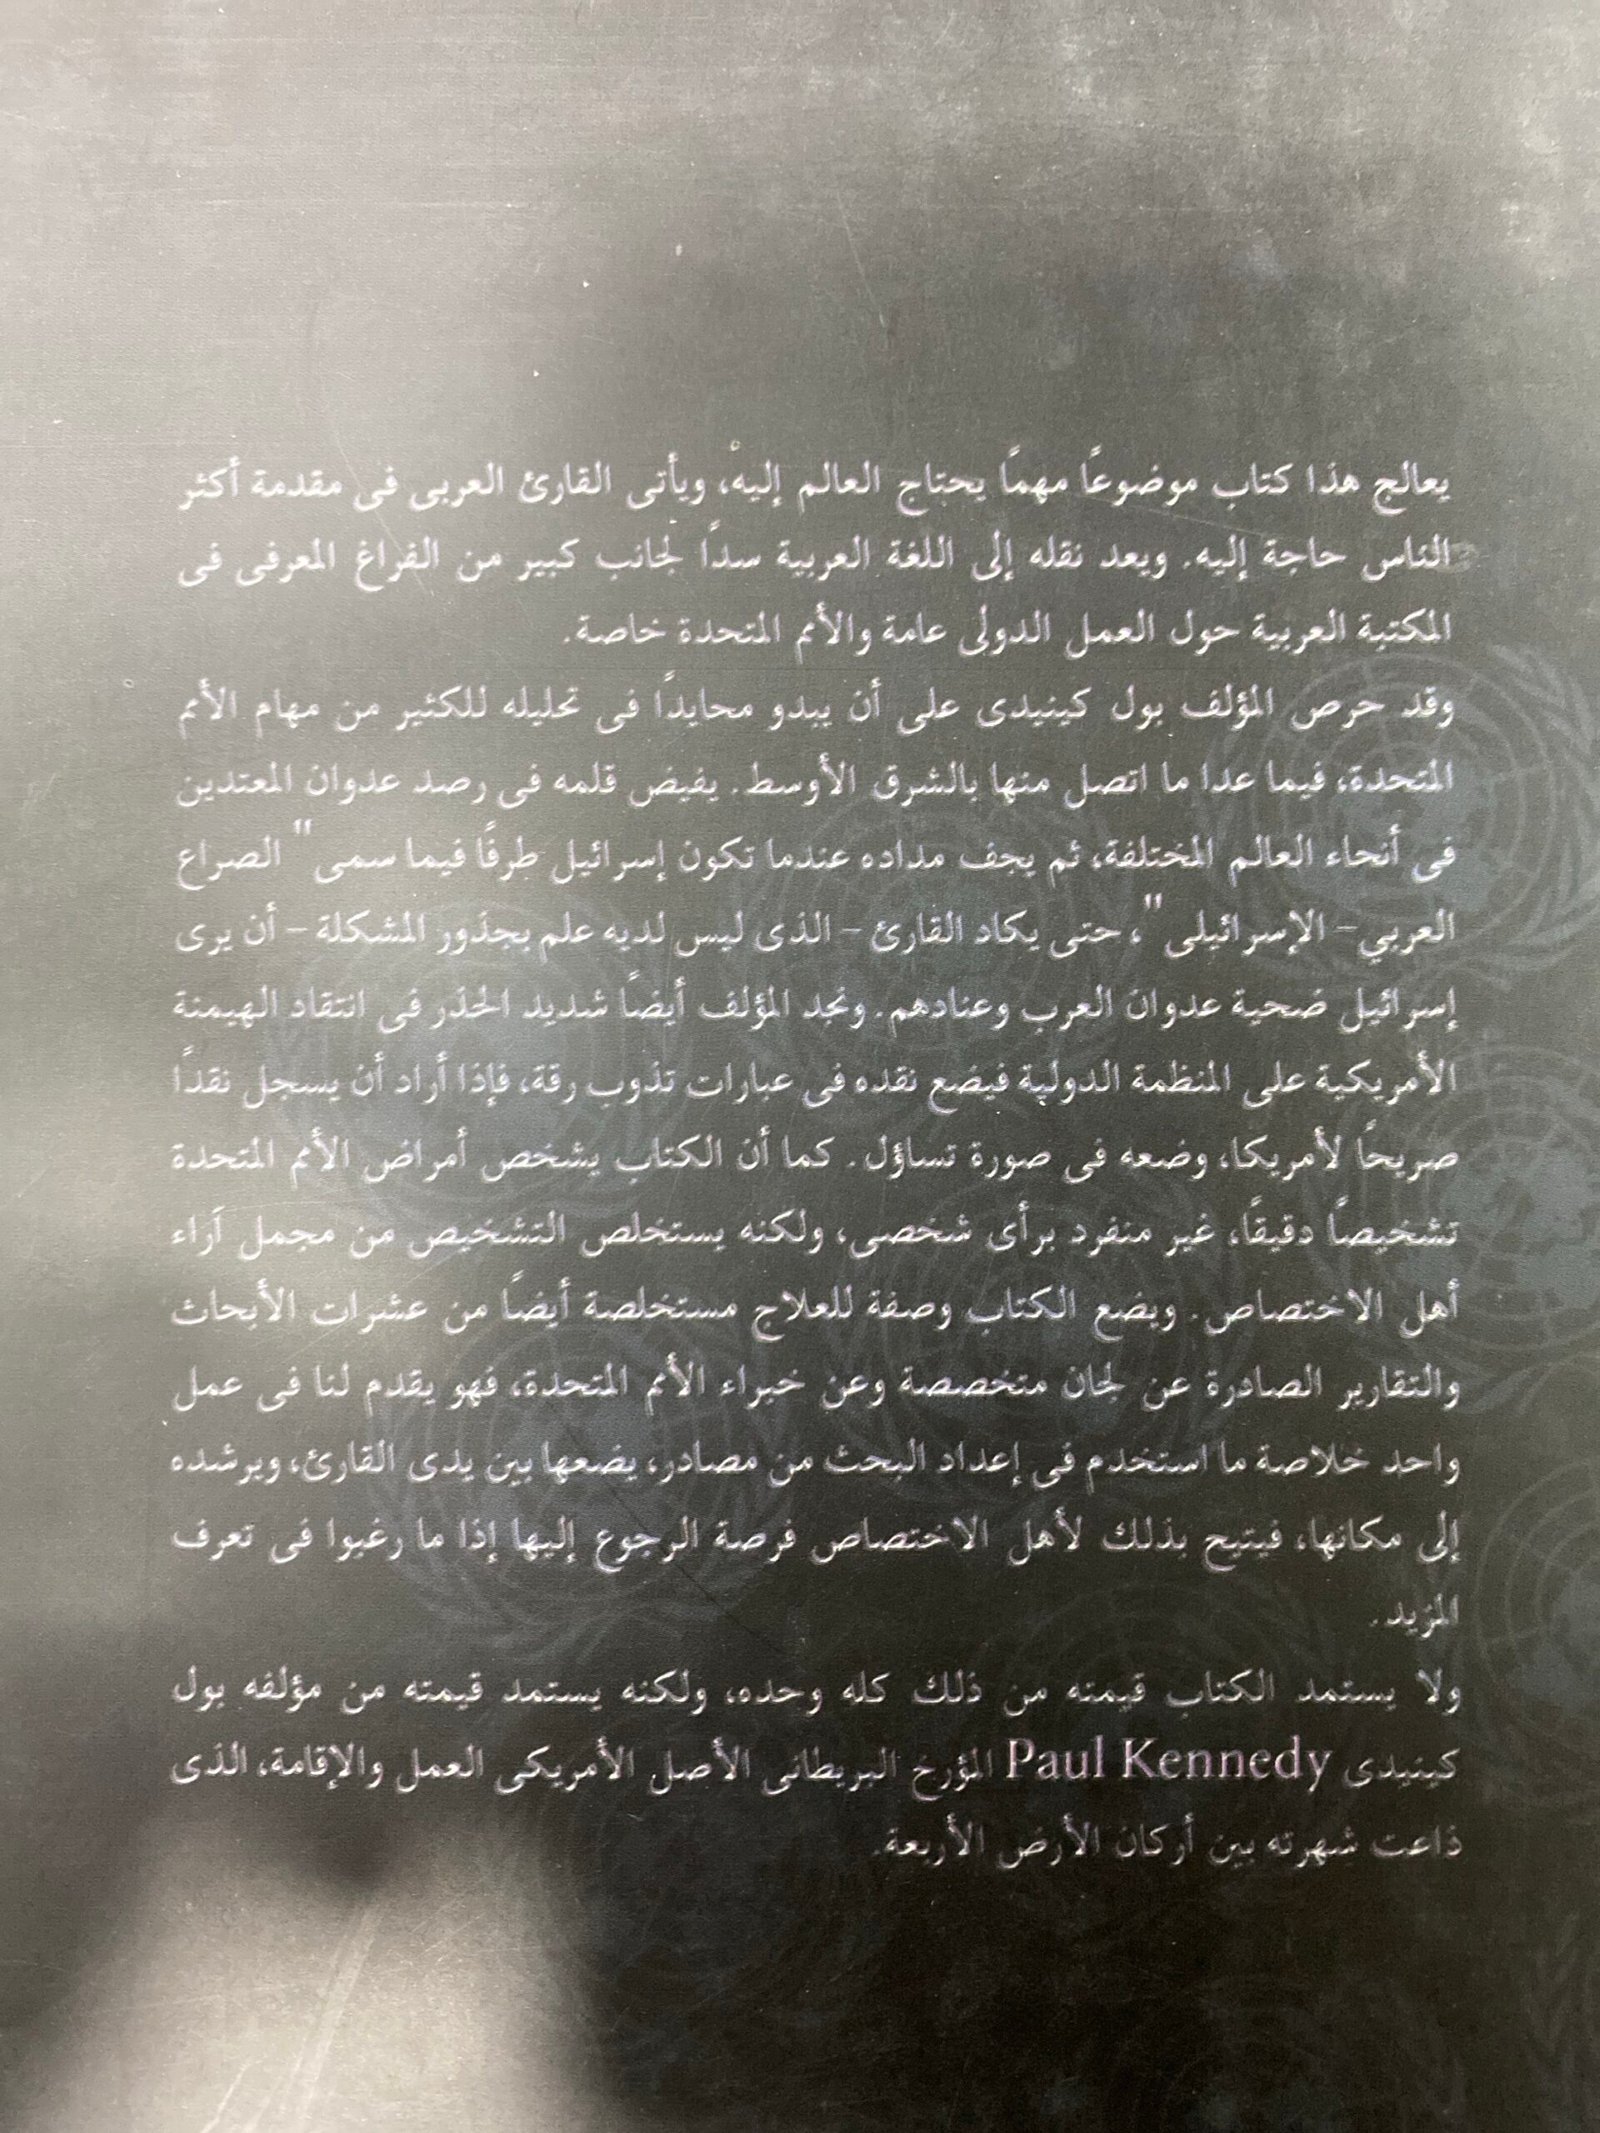 يعالج هذا كتاب موضوعًا مهمًا يحتاج العالم إليه، ويأتى القارئ العربى فى مقدمة أكثر
الناس حاجة إليه. ويعد نقله إلى اللغة العربية سدًا لجانب كبير من الفراغ المعرفى فى
المكتبة العربية حول العمل الدولى عامة والأمم المتحدة خاصة.
وقد حرص المؤلف بول كينيدى على أن يبدو محايدًا فى تحليله للكثير من مهام الأمم
المتحدة، فيما عدا ما اتصل منها بالشرق الأوسط. يفيض قلمه فى رصد عدوان المعتدين
فى أنحاء العالم المختلفة، ثم يجف مداده عندما تكون إسرائيل طرفًا فيما سمى "الصراع
العربي- الإسرائيلى"، حتى يكاد القارئ - الذى ليس لديه علم بجذور المشكلة - أن يرى
إسرائيل ضحية عدوان العرب وعنادهم. ونجد المؤلف أيضًا شديد الحذر فى انتقاد الهيمنة
الأمريكية على المنظمة الدولية فيضع نقده فى عبارات تذوب رقة، فإذا أراد أن يسجل نقدًا
صريحًا لأمريكا، وضعه فى صورة تساؤل. كما أن الكتاب يشخص أمراض الأمم المتحدة
تشخيصًا دقيقًا، غير منفرد برأى شخصى، ولكنه يستخلص التشخيص من مجمل آراء
أهل الاختصاص. ويضع الكتاب وصفة للعلاج مستخلصة أيضًا من عشرات الأبحاث
والتقارير الصادرة عن لجان متخصصة وعن خبراء الأمم المتحدة، فهو يقدم لنا فى عمل
واحد خلاصة ما استخدم فى إعداد البحث من مصادر، يضعها بين يدى القارئ، ويرشده
إلى مكانها، فيتيح بذلك لأهل الاختصاص فرصة الرجوع إليها إذا ما رغبوا فى تعرف
المزيد.
ولا يستمد الكتاب قيمته من ذلك كله وحده، ولكنه يستمد قيمته من مؤلفه بول
كينيدى Paul Kennedy المؤرخ البريطانى الأصل الأمريكى العمل والإقامة، الذى
ذاعت شهرته بين أركان الأرض الأربعة.